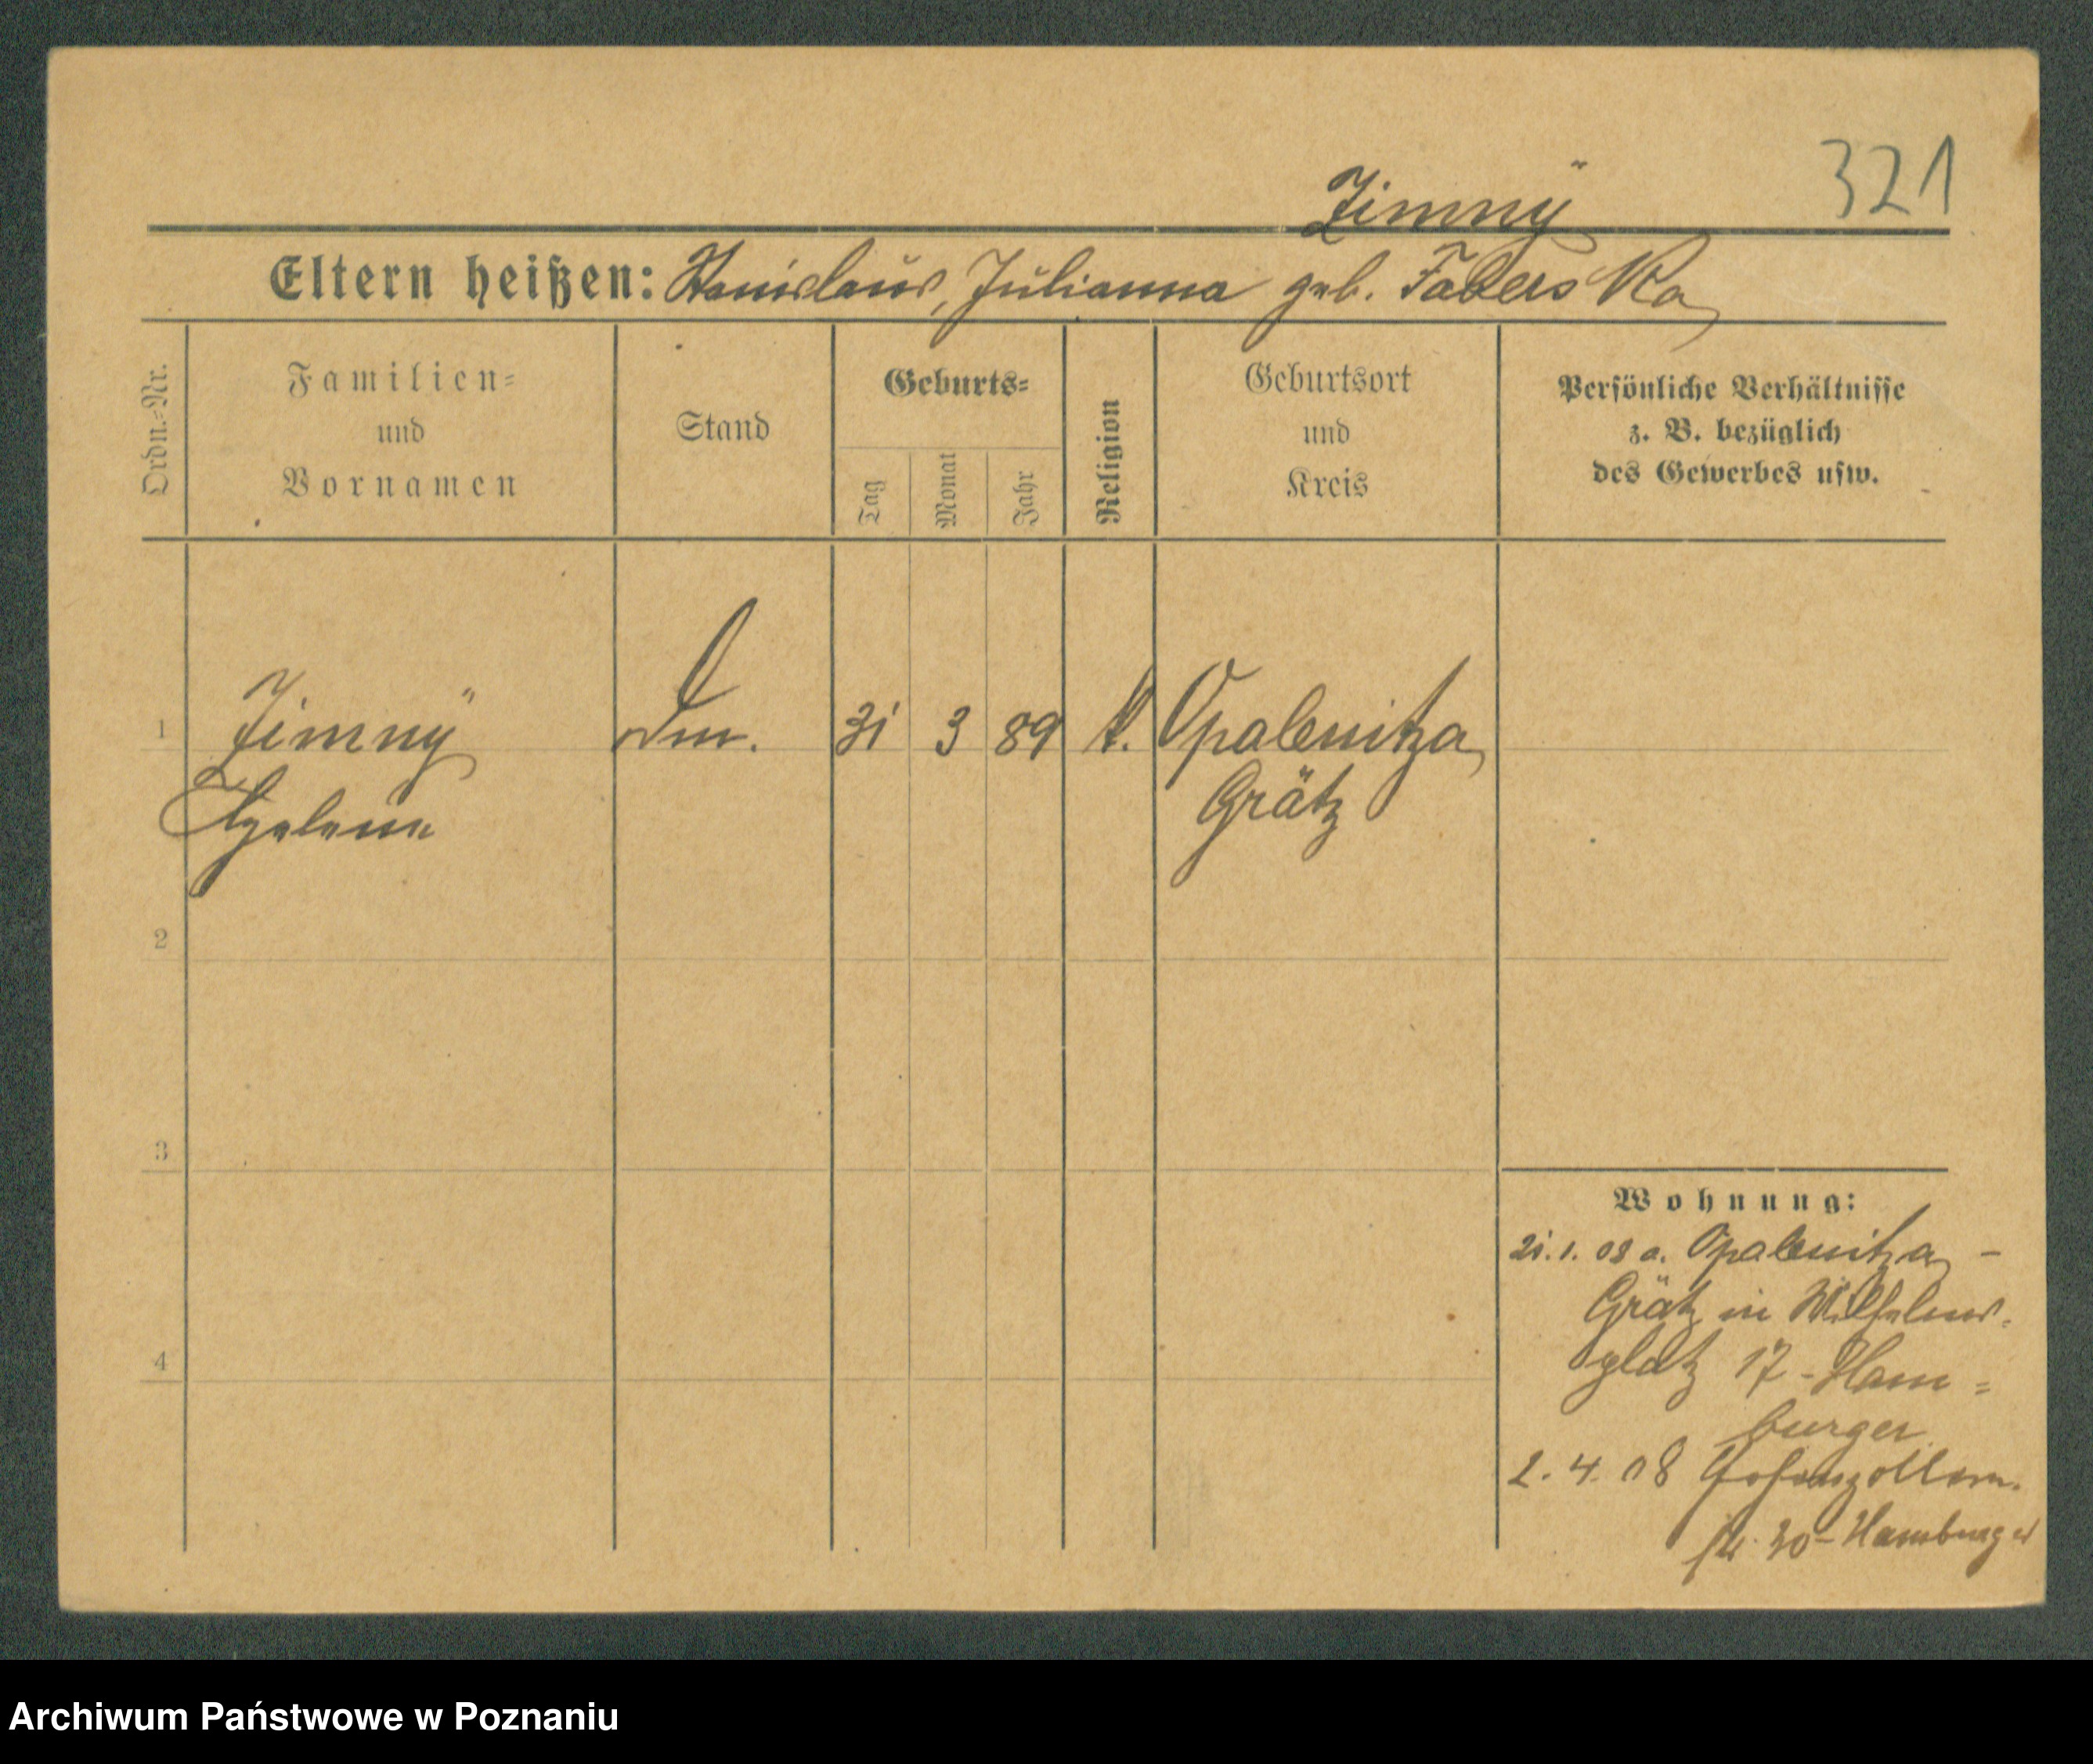 321
Zimnÿ
Eltern heißen: Stanislaus, Julianna geb. Faderska
Ordn.-Nr.
Familien-
und
Vornamen
Stand
Geburts-
Tag
Monat
Jahr
Religion
Geburtsort
und
Kreis
Persönliche Verhältnisse
z. B. bezüglich
des Gewerbes usw.
1 Zimnÿ 31 3 89 k. Opalenitza
Helene Grätz
2
3
4
Wohnung:
21.1.08 a. Opalenitza -
Grätz in Wilhelms-
platz 17 - Ham=
burger
2.4.08 Hohenzollern-
str. 30 - Hamburger
Archiwum Państwowe w Poznaniu